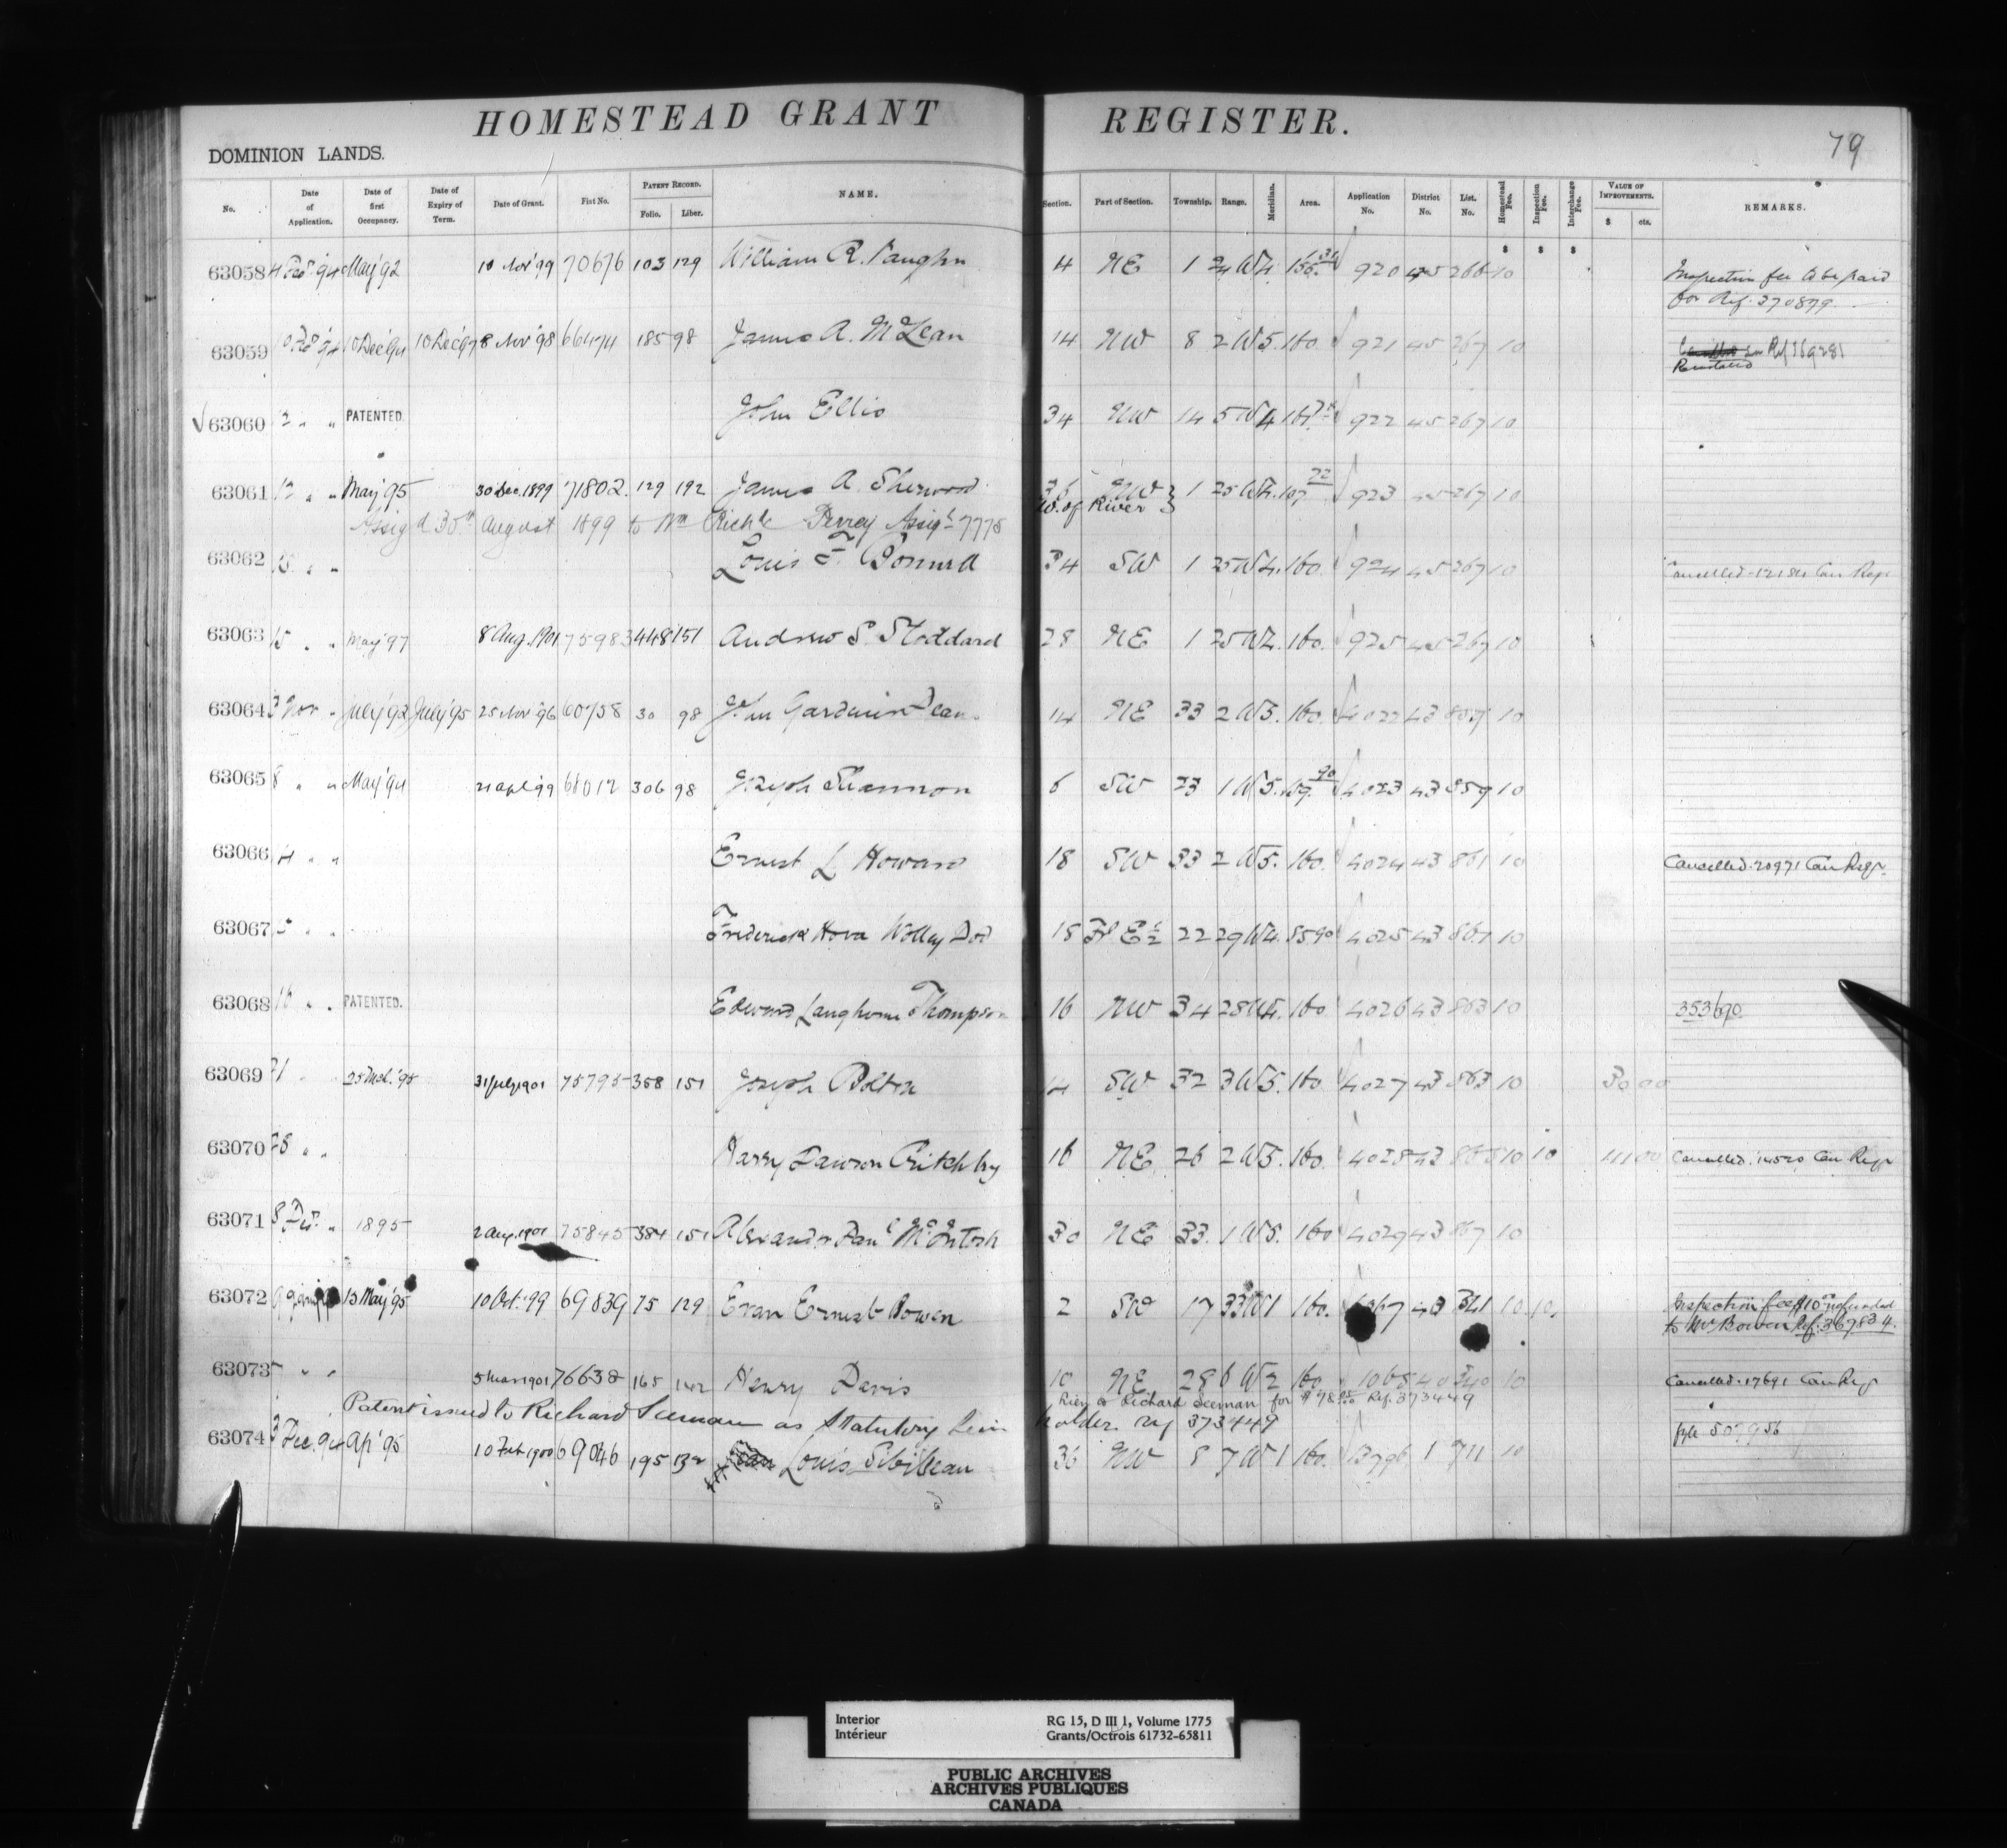 HOMESTEAD GRANT REGISTER.
79
DOMINION LANDS.
No. Date of Application. Date of first Occupancy. Date of Expiry of Term. Date of Grant. Fiat No. PATENT RECORD. Folio. Liber. NAME. Section. Part of Section. Township. Range. Meridian. Area. Application No. District No. List. No. Homestead Fee. Inspection Fee. Interchange Fee. VALUE OF IMPROVEMENTS. $ cts. REMARKS.
63058 May '92 10 Nov '99 70676 103 129 William R. Vaughn 4 NE 1 24 W4. 920 45 266 10 Inspection fee to be paid
for Ref. 370879.
63059 10 Dec '94 10 Dec '97 8 Nov '98 66474 185 98 James A. McLean 14 NW 8 2 W5. 160. 921 45 267 10 Ref 369281
63060 12 " " PATENTED. John Ellis 34 NW 14 5 W4 922 45 267 10
63061 12 " " May '95 30 Dec. 1899 71802. 129 192 James A. Sherwood 36 NW } 1 25 W4. 107 72 923 45 267 10
W. of River }
Assig'd 30th August 1899 to Wm Rich'd Assig't 7775
63062 15 " " Louis F. 34 SW 1 25 W4. 160. 924 45 267 10 Cancelled 12184 Can Regr
63063 15 " " May '97 8 Aug. 1901 75983 448 151 Andrew S. Stoddard 28 NE 1 25 W4. 160. 925 45 267 10
63064 3 Nov " July '92 July '95 25 Nov '96 60758 30 98 John Gardiner 14 NE 33 2 W5. 160. 4022 43 857 10
63065 8 " " May '94 21 Apl '99 68012 306 98 Joseph Shannon 6 SW 23 1 W5. 159. 90 4023 43 859 10
63066 14 " " Ernest L Howard 18 SW 33 2 W5. 160. 4024 43 861 10 Cancelled 20971 Can Regr.
63067 5 " " Frederick Hova Wolley Dod 18 Fl E½ 22 29 W4. 85 90 4025 43 861 10
63068 16 " " PATENTED. Edward Langhorne Thompson 16 NW 34 28 W4. 160 4026 43 863 10 353690
63069 21 " 25 Mch. '95 31 July 1901 75795 358 151 Joseph Bolton SW 32 3 W5. 160 4027 43 863 10 30 00
63070 28 " " Harry Dawson Critchley 16 NE 26 2 W5. 160. 4028 43 865 10 10 Cancelled 14520 Can Regr
63071 8 Dec. " 1895 2 Aug. 1901 75845 384 151 Alexander Dan'l McIntosh 30 NE 33. 1 W5. 160 4029 43 867 10
63072 15 May '95 10 Oct. '99 69839 75 129 Evan Ernest Bowen 2 SW 17 33 W1 160. 341 10 10. Inspection fee $10 00 refunded
to Mr Bowen Ref. 367834.
63073 " " 5 Mar 1901 76638 165 142 Henry Davis 10 NE 28 6 W2 160. 1068 40 340 10 Cancelled 17691 Can Regr
Lien to Richard Seeman for $ Ref. 373449
Patent issued to Richard Seeman as Statutory Lien holder. Ref 373449
63074 3 Dec. 94 Ap' 95 10 Feb 1900 69046 195 132 Louis Sibilleau 36 NW 8 7 W1 160. 13796 1 711 10 file 507956
Interior RG 15, D III 1, Volume 1775
Intérieur Grants/Octrois 61732-65811
PUBLIC ARCHIVES
ARCHIVES PUBLIQUES
CANADA